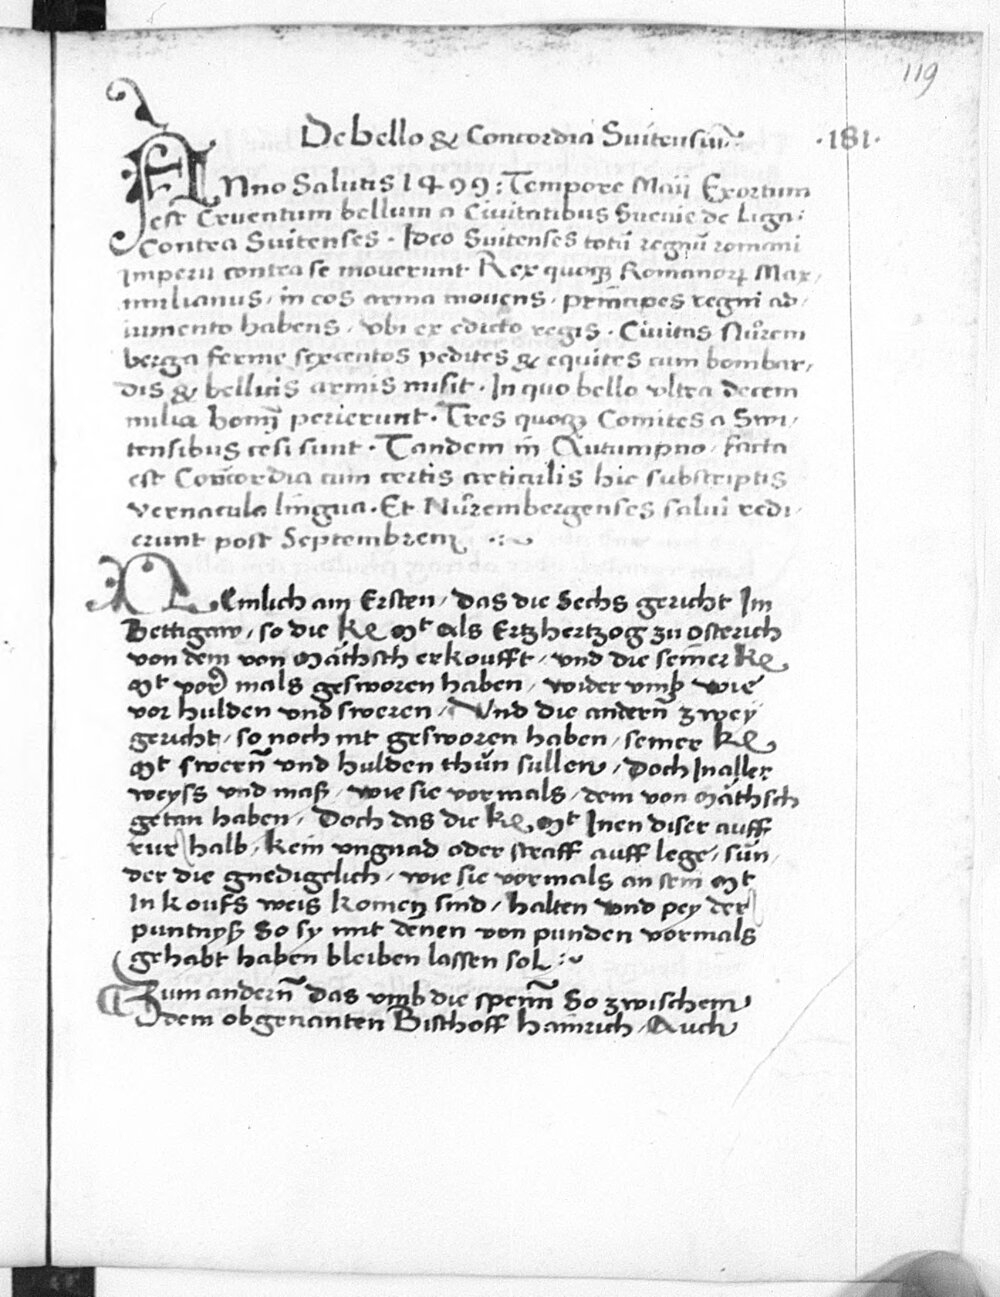 119
De bello & Concordia Suitensiu᷑ ·181·
ANno Salutis 1499: Tempore Maij Exortum
est Cruentum bellum a Ciuitatibus Sueuie de Liga:
Contra Suitenses. Ideo Suitenses totū regnū romani
imperii contra se mouerunt Rex quoqꝫ Romanorꝝ Max/
imilianus, in eos arma mouens, principes regni ad/
iumento habens, vbi ex edicto regis. Ciuitas Nůrem
berga ferme sexcentos pedites & equites cum bombar/
dis & bellicis armis misit. In quo bello vltra decem
milia homĩ perierunt. Tres quoqꝫ Comites a Swi/
tensibus cesi sunt. Tandem in Autumpno, facta
est Concordia cum certis articulis hic subscriptis
vernacula lingua. Et Nůrembergenses salui redi/
erunt post Septembrem
NEmlich am Ersten, das die Sechs gericht Im
Bettigaw, so die ke Mt als Ertzhertzog zu osterich
von dem von Mäthsch erkoufft, vnd die seiner ke
Mt vor mals gesworen haben, wider vmb wie
vor hulden vnd sweren, Vnd die andern̄ zwey
gericht, so noch nit gesworen haben, seiner ke
Mt swern̄ vnd hulden thůn sullen, Doch In aller
weyss vnd maß, wie sie vormals, dem von Mäthsch
getan haben, Doch das die ke Mt Inen diser auff
rur halb, kein vngnad oder straff auff lege, sůn,
der die gnedigelich, wie sie vormals an sein Mt
In koufs weis komen sind, halten vnd pey der
puntnyß So sy mit denen von punden vormals
gehabt haben bleiben lassen sol:~
Zum andern̄ Das vmb die spenn̄ So zwischem
dem obgenanten Bisthoff hainrich, Auch